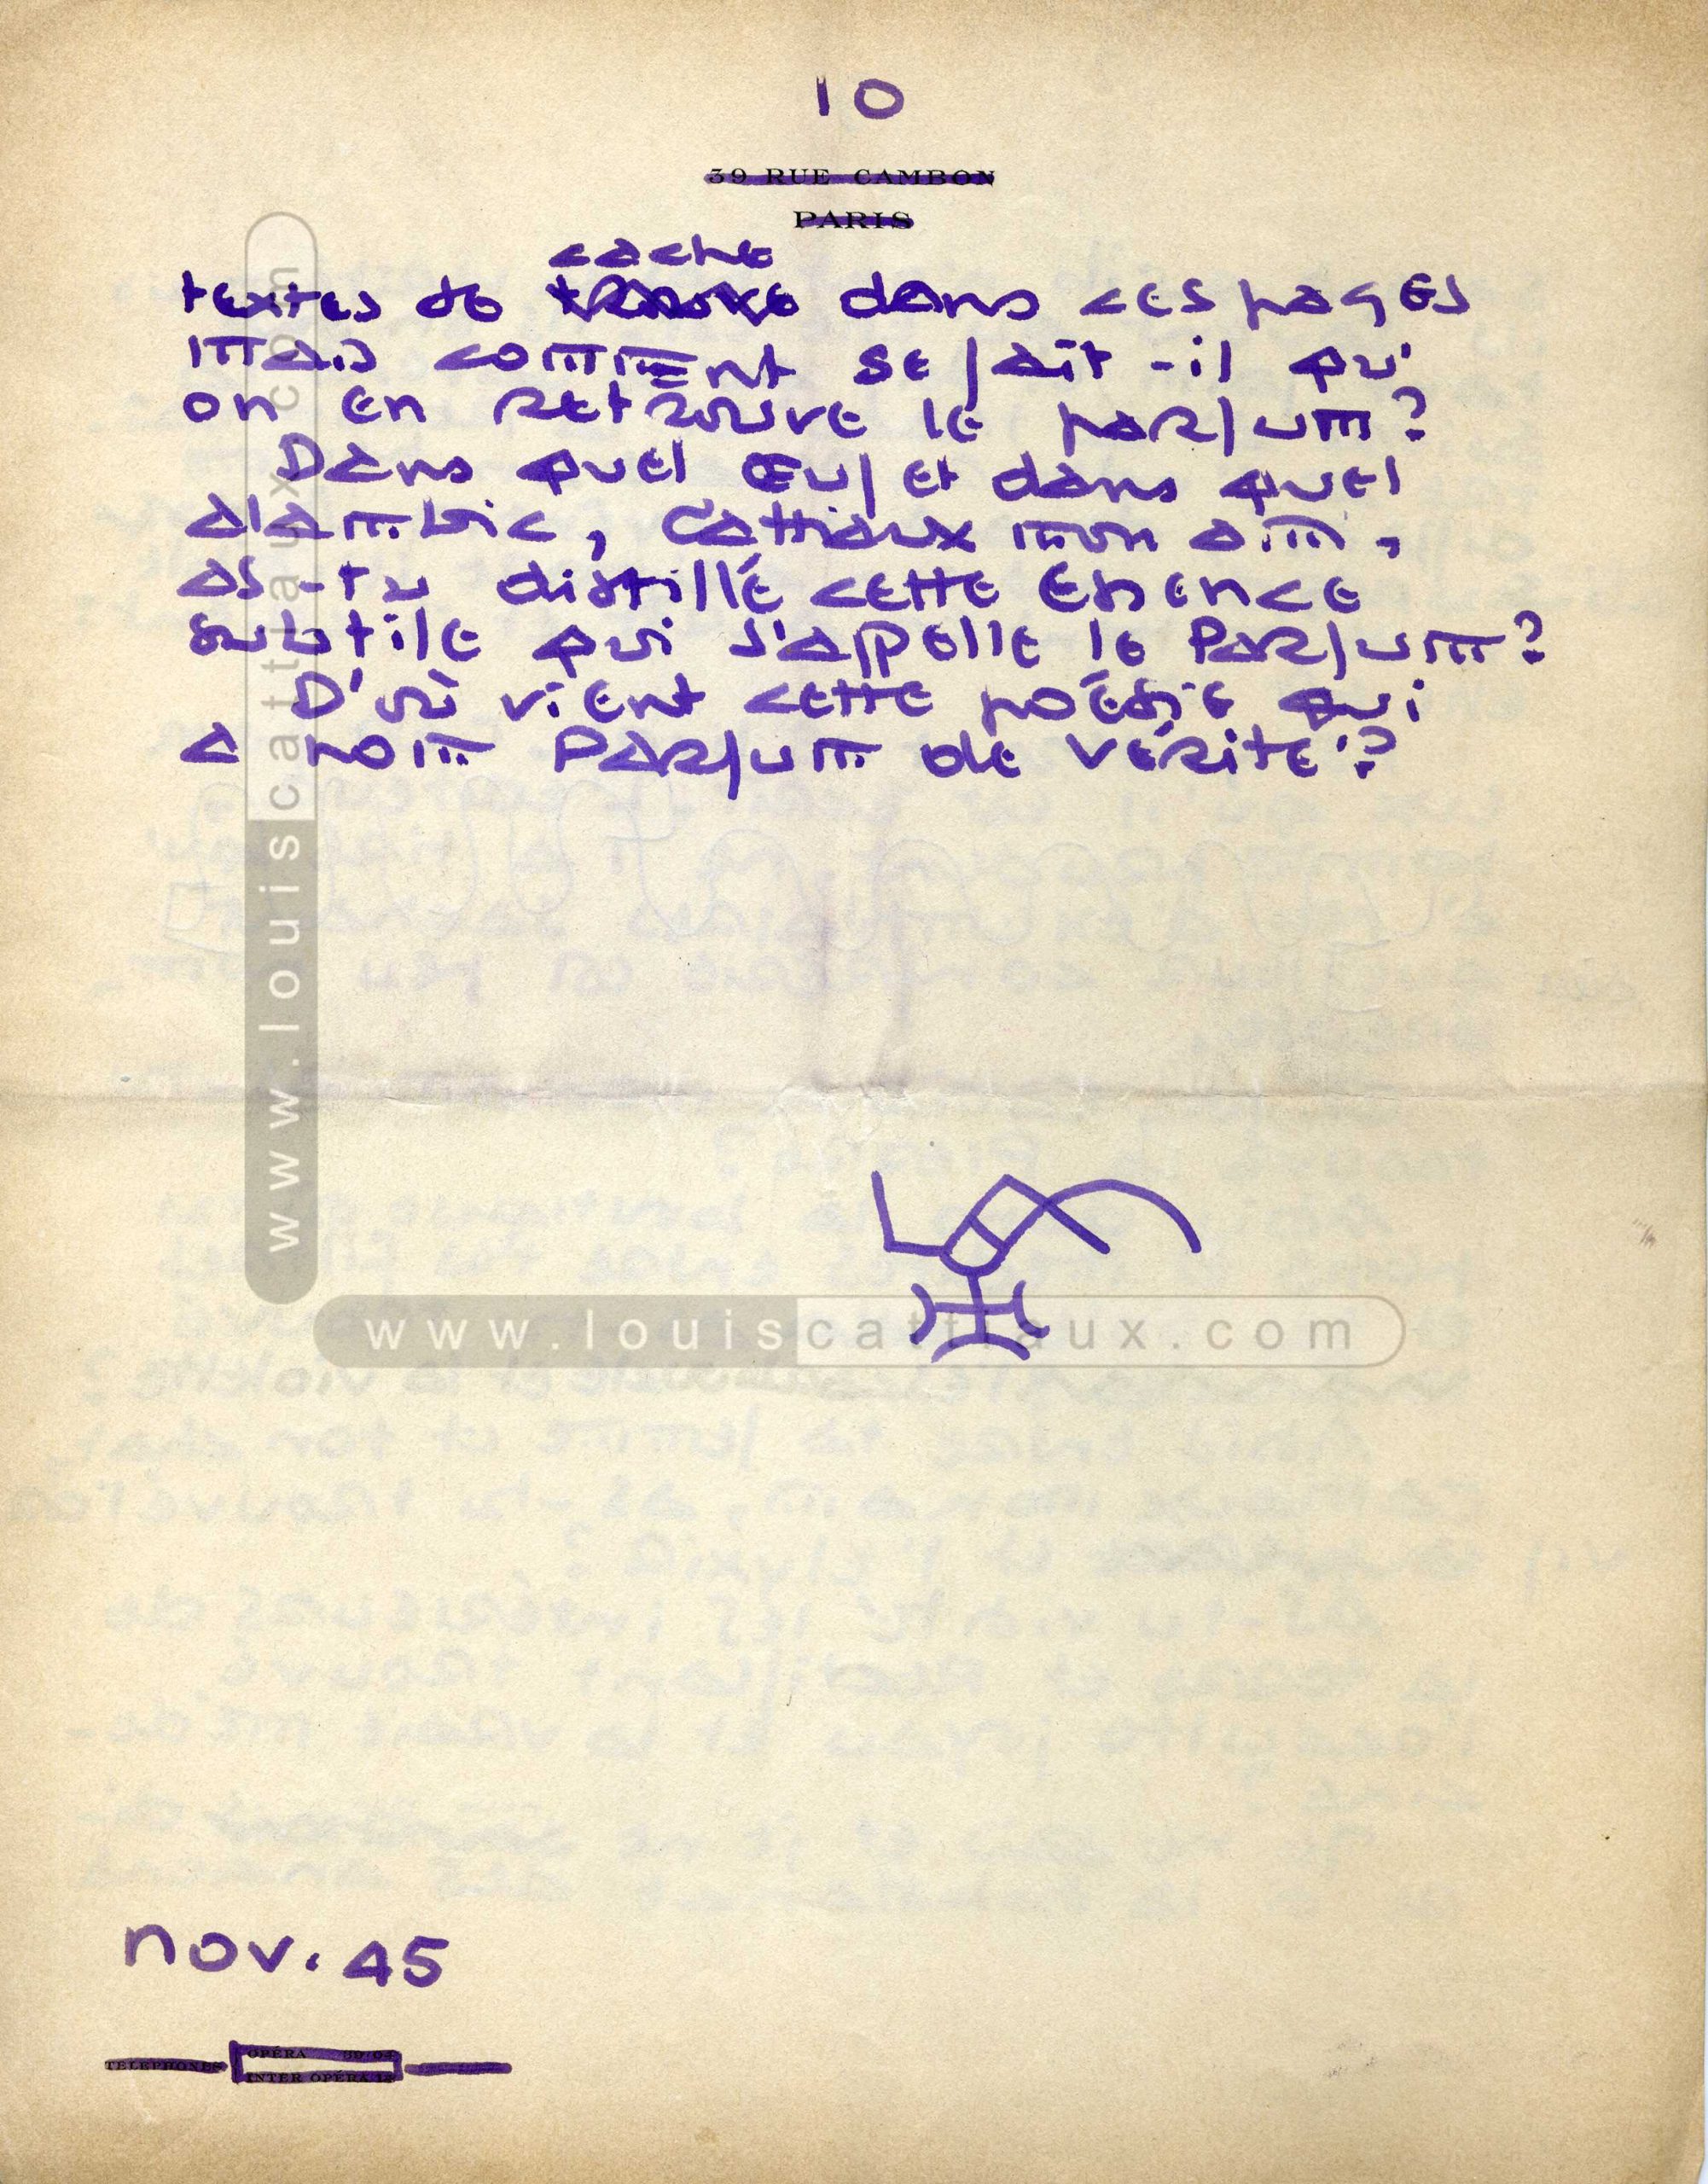 10
39 RUE CAMBON
PARIS
cache
textes de trouve dans ces pages
mais comment se fait-il qu'
on en retrouve le parfum?
Dans quel Œuf et dans quel
alambic, Cattiaux mon ami,
as-tu distillé cette Essence
subtile qui s'appelle le Parfum?
D'où vient cette poésie qui
a nom Parfum de Vérité?
www.louiscattiaux.com
www.louiscattiaux.com
nov. 45
TÉLÉPHONES
OPÉRA
INTER OPÉRA